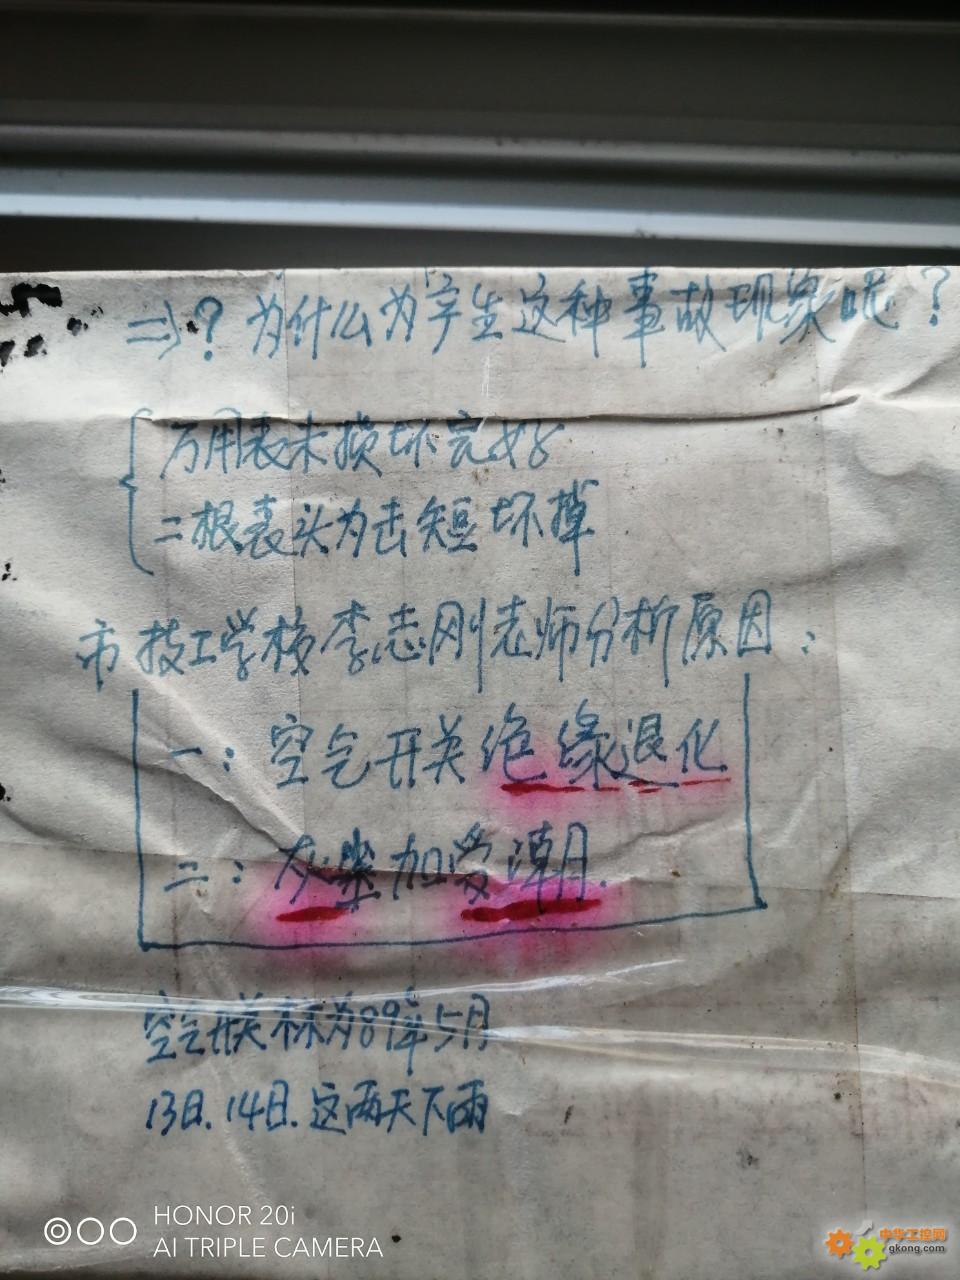 ⇒? 为什么为产生这种事故现象呢?
万用表未损坏完好
二根表头为击短坏掉
市技工学校李志刚老师分析原因:
一: 空气开关绝缘退化
二: 灰尘加受潮.
空气开关标为89年5月
13日.14日.这两天下雨
HONOR 20i
AI TRIPLE CAMERA
中华工控网
gkong.com